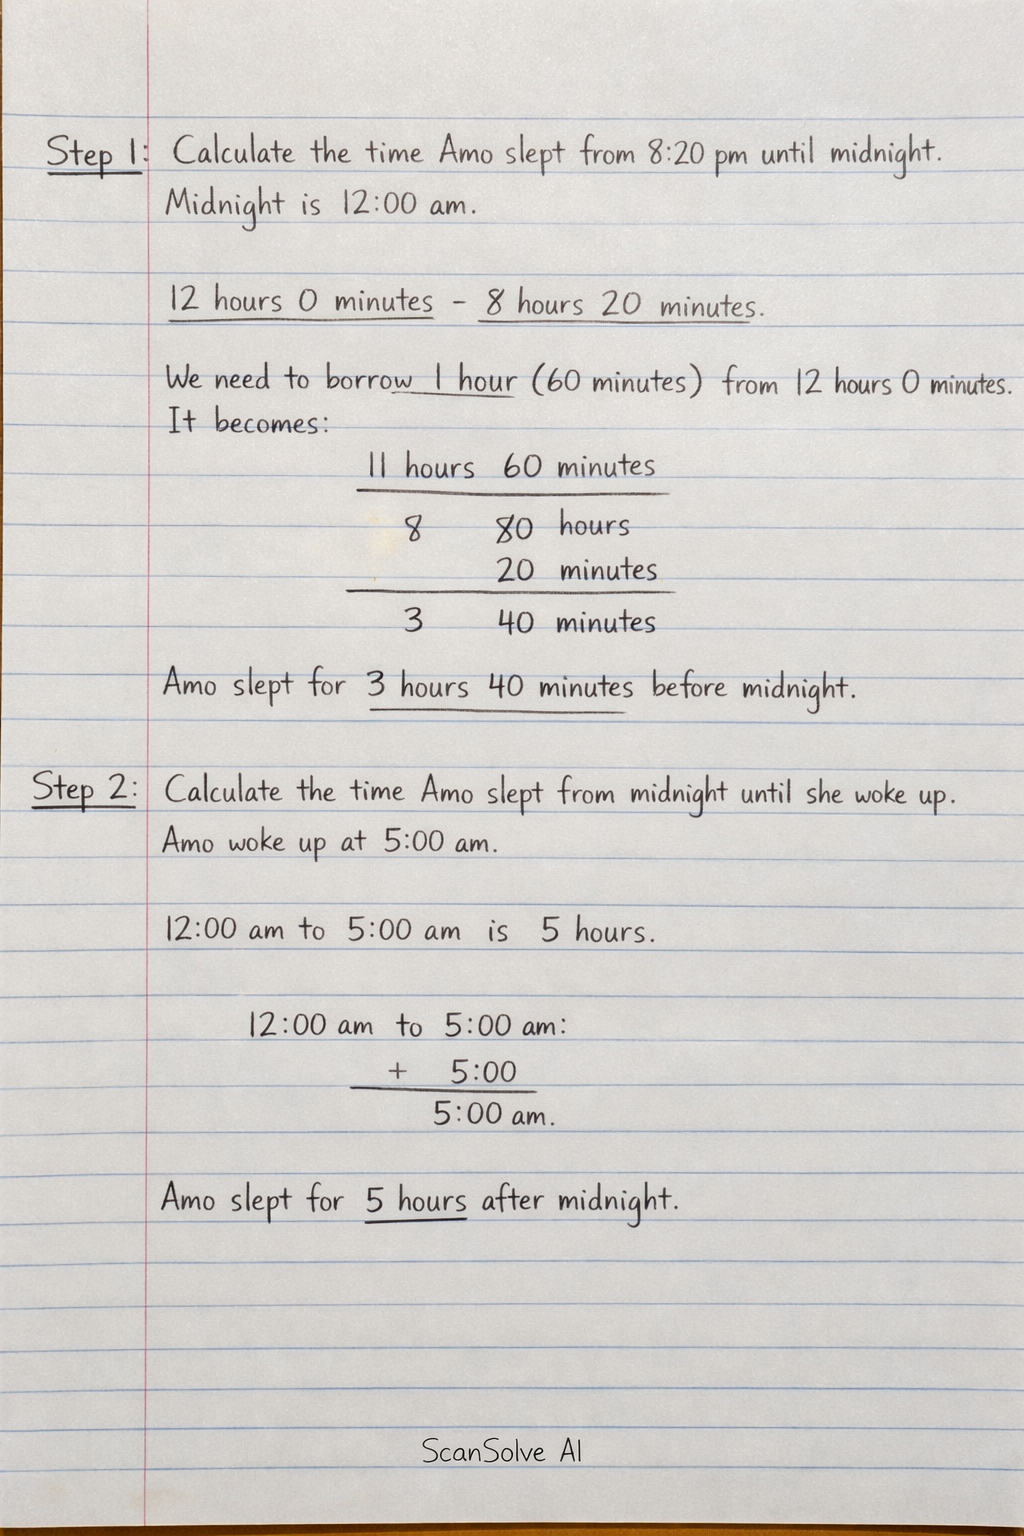 Step 1: Calculate the time Amo slept from 8:20 pm until midnight.
Midnight is 12:00 am.
12 hours 0 minutes - 8 hours 20 minutes.
We need to borrow 1 hour (60 minutes) from 12 hours 0 minutes.
It becomes:
11 hours 60 minutes
8 80 hours
20 minutes
3 40 minutes
Amo slept for 3 hours 40 minutes before midnight.
Step 2: Calculate the time Amo slept from midnight until she woke up.
Amo woke up at 5:00 am.
12:00 am to 5:00 am is 5 hours.
12:00 am to 5:00 am:
+ 5:00
5:00 am.
Amo slept for 5 hours after midnight.
ScanSolve AI